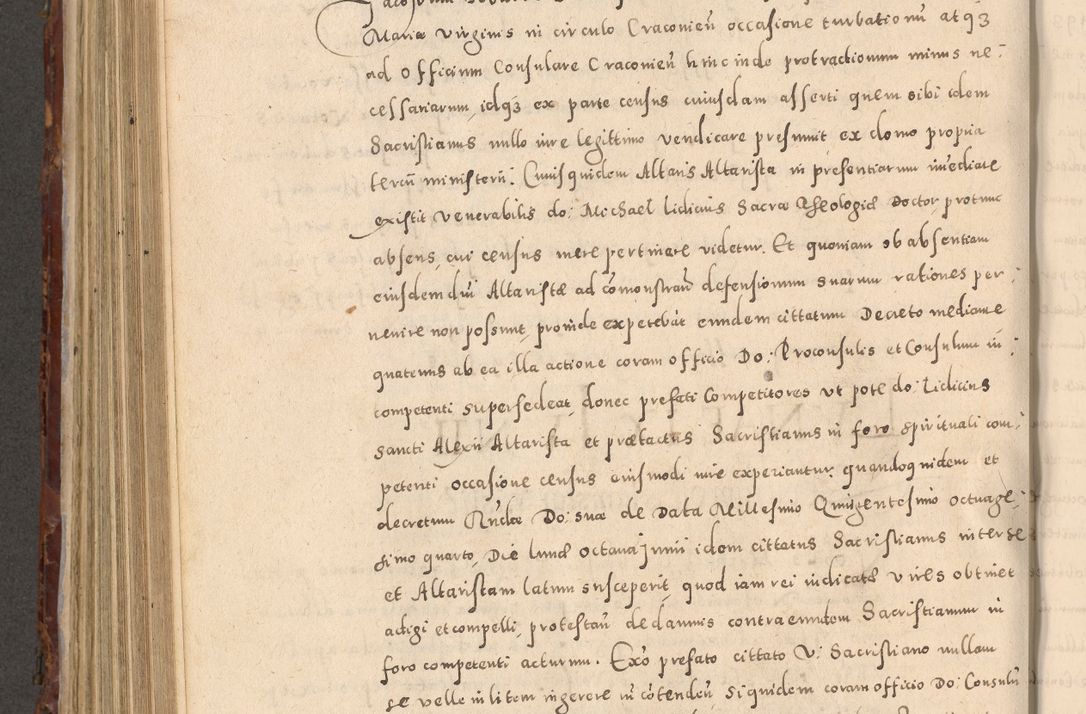 Mariæ Virginis in circulo Cracovien̄ occasione turbationū atq3
ad Officium Consulare Cracovien̄ hinc inde protractionum minus ne:
cessariarum, idq3 ex parte census cuiusdam asserti quem sibi idem
Sacristianus nullo iure legittimo vendicare presumit ex domo propria
tercii ministerii: Cuius quidem Altaris Altarista in presentiarum imediate
existit Venerabilis do: Michael Lidicius Sacræ Theologiæ Doctor protunc
absens, cui census mere pertinere videtur. Et quoniam ob absentiam
eiusdem dni Altaristæ ad cōmonstran̄ defensionum suarum rationes per:
venire non possunt, proinde expetebāt eundem cittatum Decreto mediante
quatenus ab ea illa actione coram officio Do: Proconsulis et Consulum in:
competenti supersedeat, donec prefati Competitores vt pote do: Lidicius
sancti Alexii Altarista et prætactus Sacristianus in foro spirituali com:
petenti occasione census eiusmodi iure experiantur, quandoquidem et
decretum Rn̄dæ Do: suæ de Data Millesimo Quingentesimo octuage:
simo quarto, Die lunæ octava junii idem cittatus Sacristianus inter se
et Altaristam latum susceperit, quod iam rei iudicatæ vires obtinet
adigi et compelli, protestan̄ de damnis contra eundem Sacristianum in
foro competenti acturum. Exo prefato cittato V: Sacristiano nullam
se velle in litem ingerere nī cōtenden̄ siquidem coram officio Do: Consulū